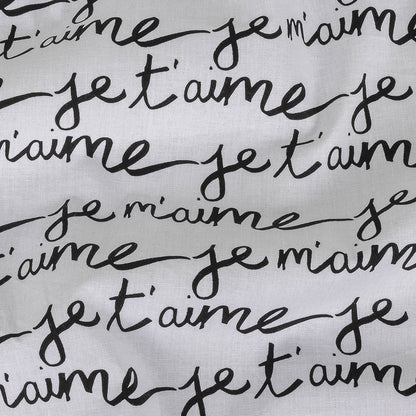 t'aime je m'aime
je t'aime je
m'aime je t'aime
je m'aime je
t'aime je m'aime
je t'aime je
m'aime je t'aime